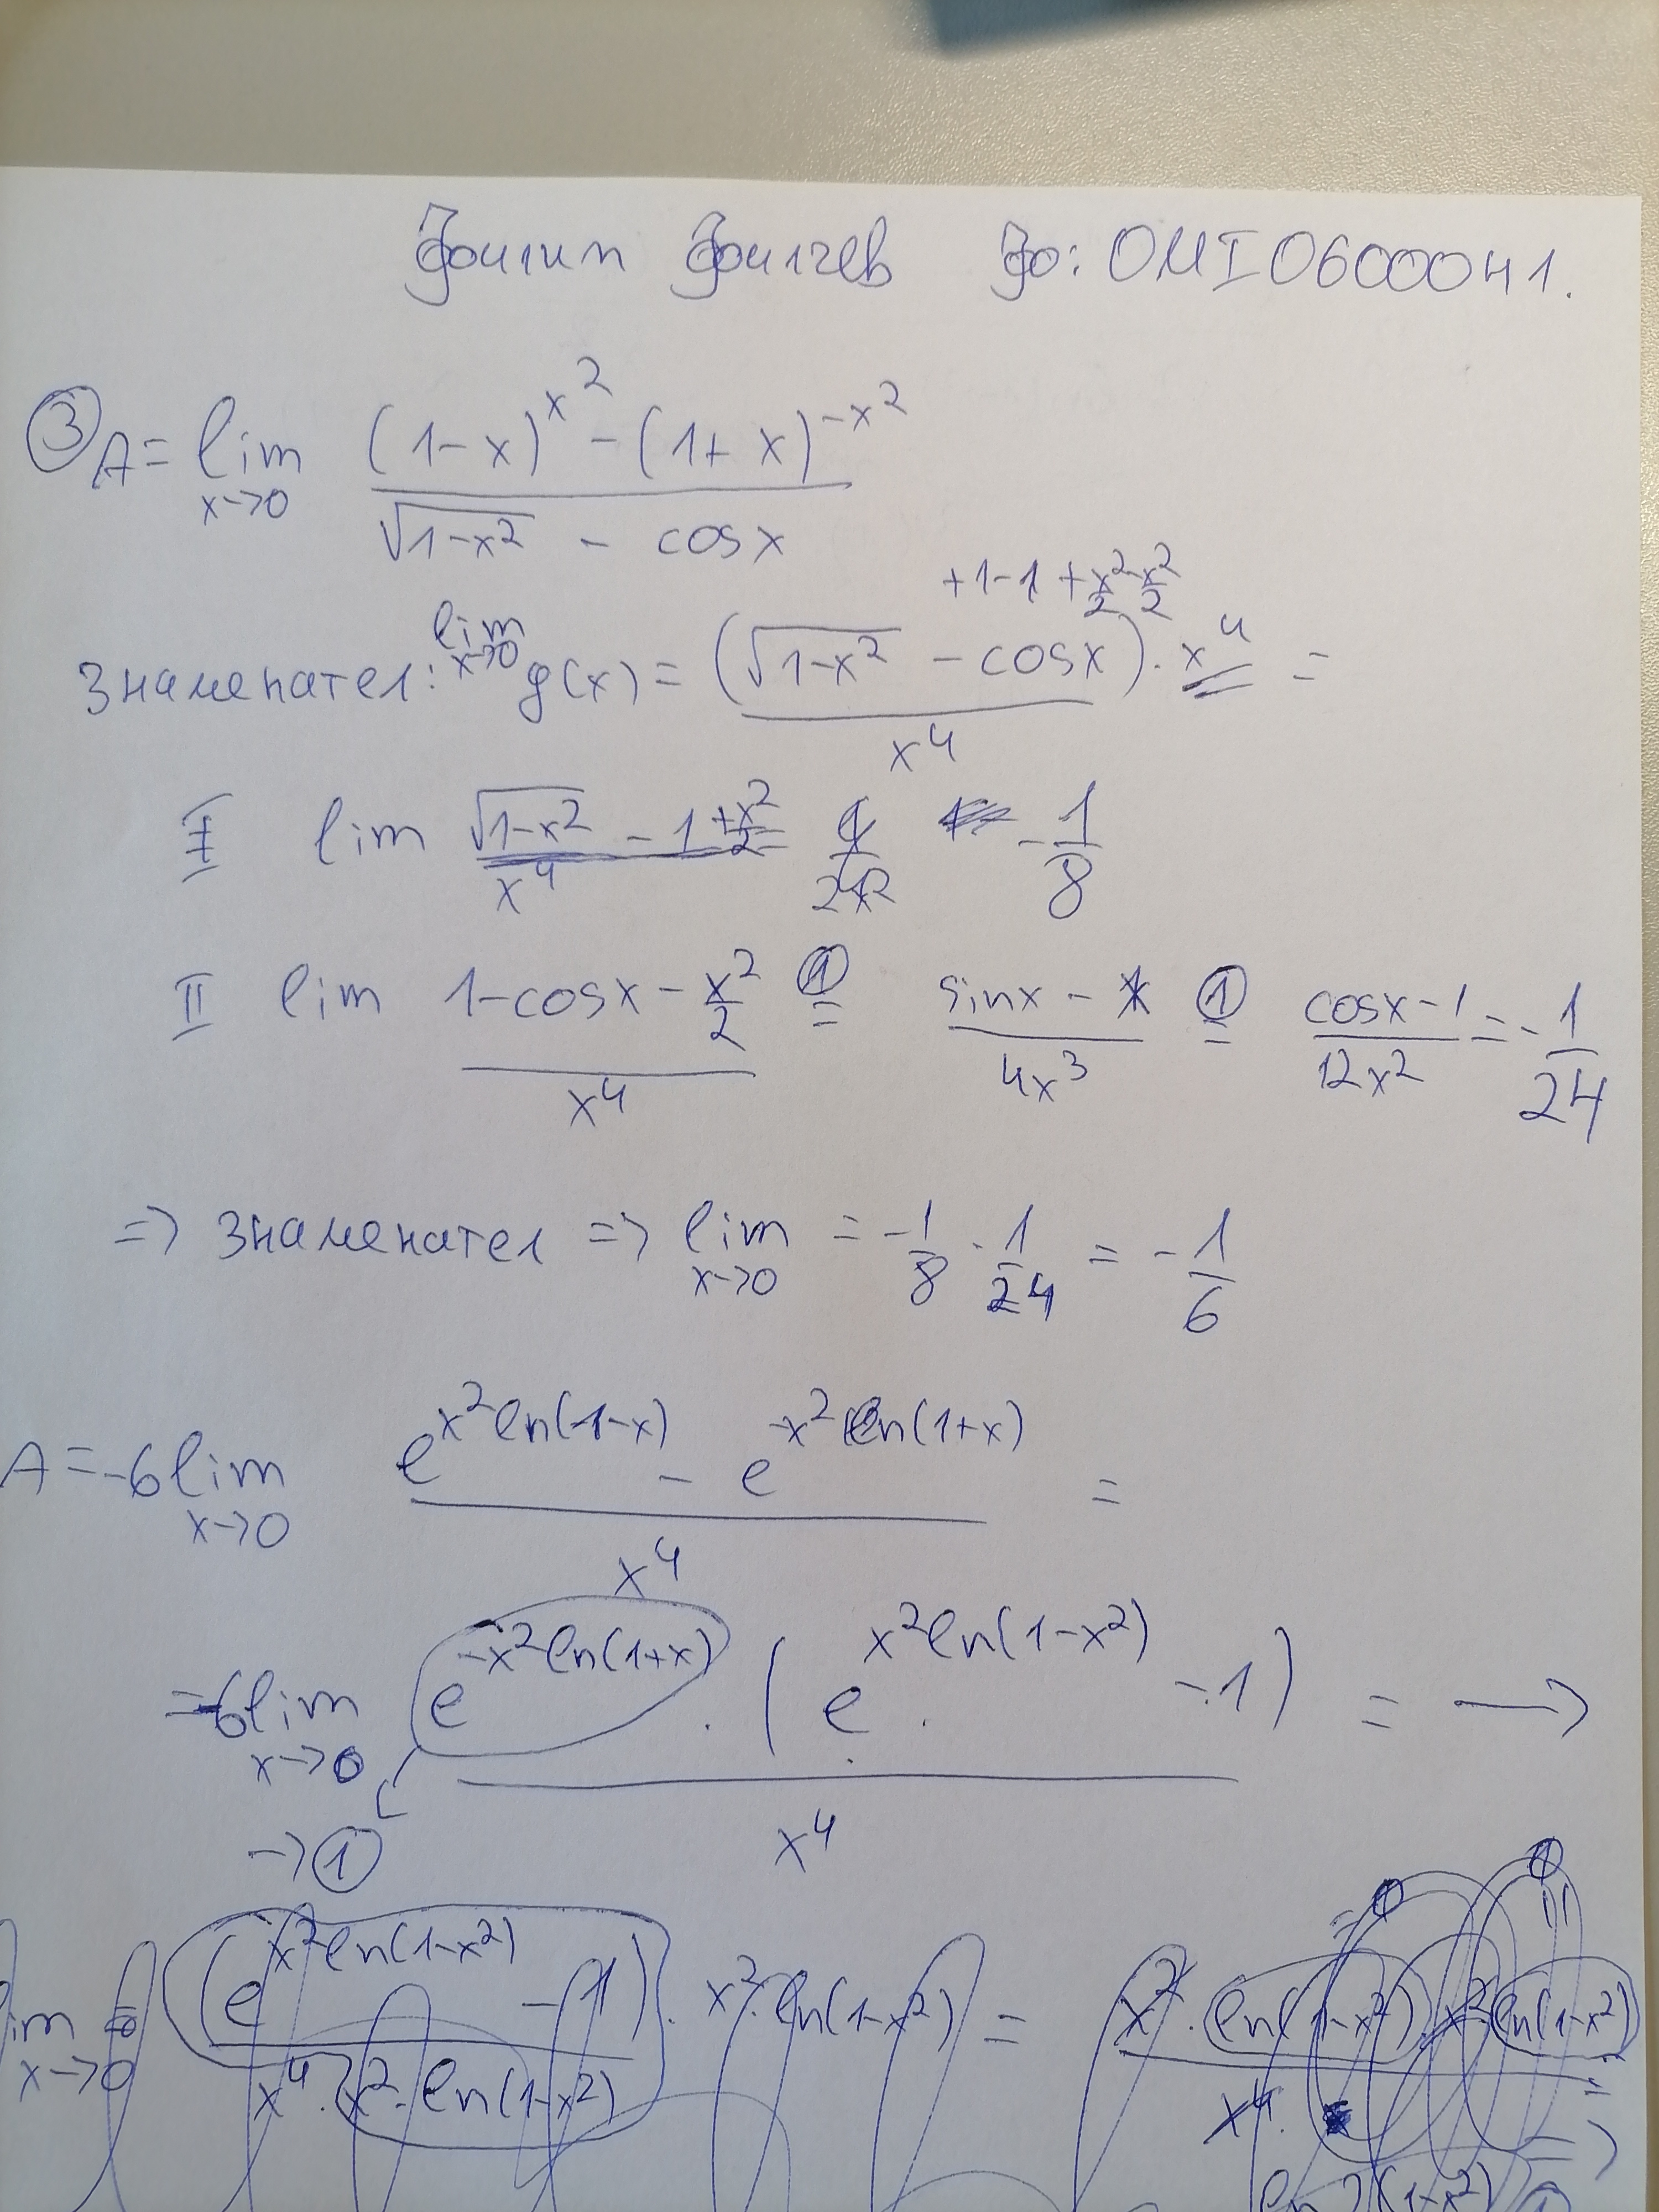 Филип Филчев фо: 0MI0600041.
③ A = lim x→0 ((1-x)^{x^2} - (1+x)^{-x^2}) / (√(1-x^2) - cosx)
+1-1 + x^2/2 - x^2/2
Знаменател: lim x→0 g(x) = (√(1-x^2) - cosx)/x^4 · x^4 =
I lim (√(1-x^2) - 1 + x^2/2)/x^4 = -1/8
II lim (1-cosx - x^2/2)/x^4 ①= (sinx - x)/4x^3 ①= (cosx-1)/12x^2 = -1/24
=> знаменател => lim x→0 = -1/8 - 1/24 = -1/6
A = -6 lim x→0 (e^{x^2 ln(1-x)} - e^{-x^2 ln(1+x)})/x^4 =
= -6 lim x→0 e^{-x^2 ln(1+x)} · (e^{x^2 ln(1-x^2)} - 1)/x^4 = →
→ ①
lim x→0 (e^{x^2 ln(1-x^2)} - 1)/(x^4 · x^2 · ln(1-x^2)) · x^2 · ln(1-x^2) = x^2 · ln(1-x^2) · x^2 ln(1-x^2) / x^4 · =
=>